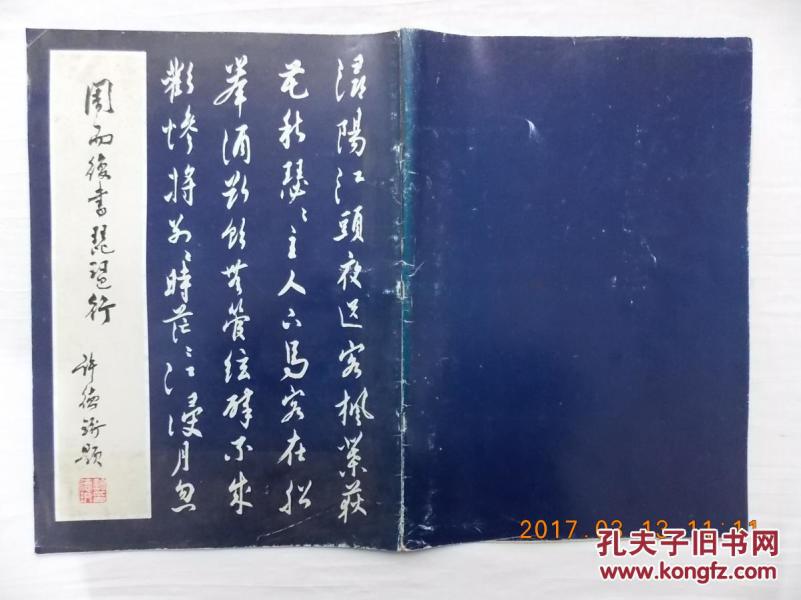 潯陽江頭夜送客楓葉荻
花秋瑟々主人下馬客在船
舉酒欲飲無管絃醉不成
歡慘將別々時茫々江浸月忽
周而復書琵琶行
許德珩題
孔夫子旧书网
www.kongfz.com